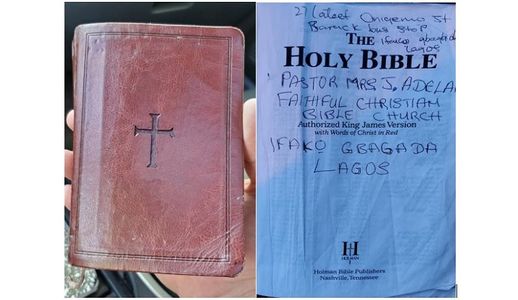 27 Lateef Onigemo St
Barrack bus stop
THE Ifako gbagada
Lagos
HOLY BIBLE
PASTOR MRS J. ADELA
FAITHFUL CHRISTIAN
BIBLE CHURCH
Authorized King James Version
with Words of Christ in Red
IFAKO GBAGADA
LAGOS
H
HOLMAN
Holman Bible Publishers
Nashville, Tennessee